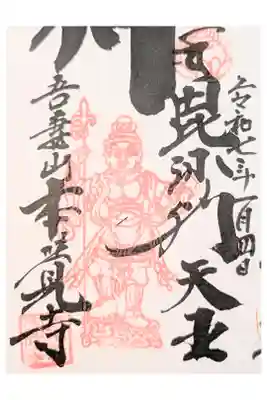 令和七年一月四日
毘沙門天王
吾妻山本覚寺